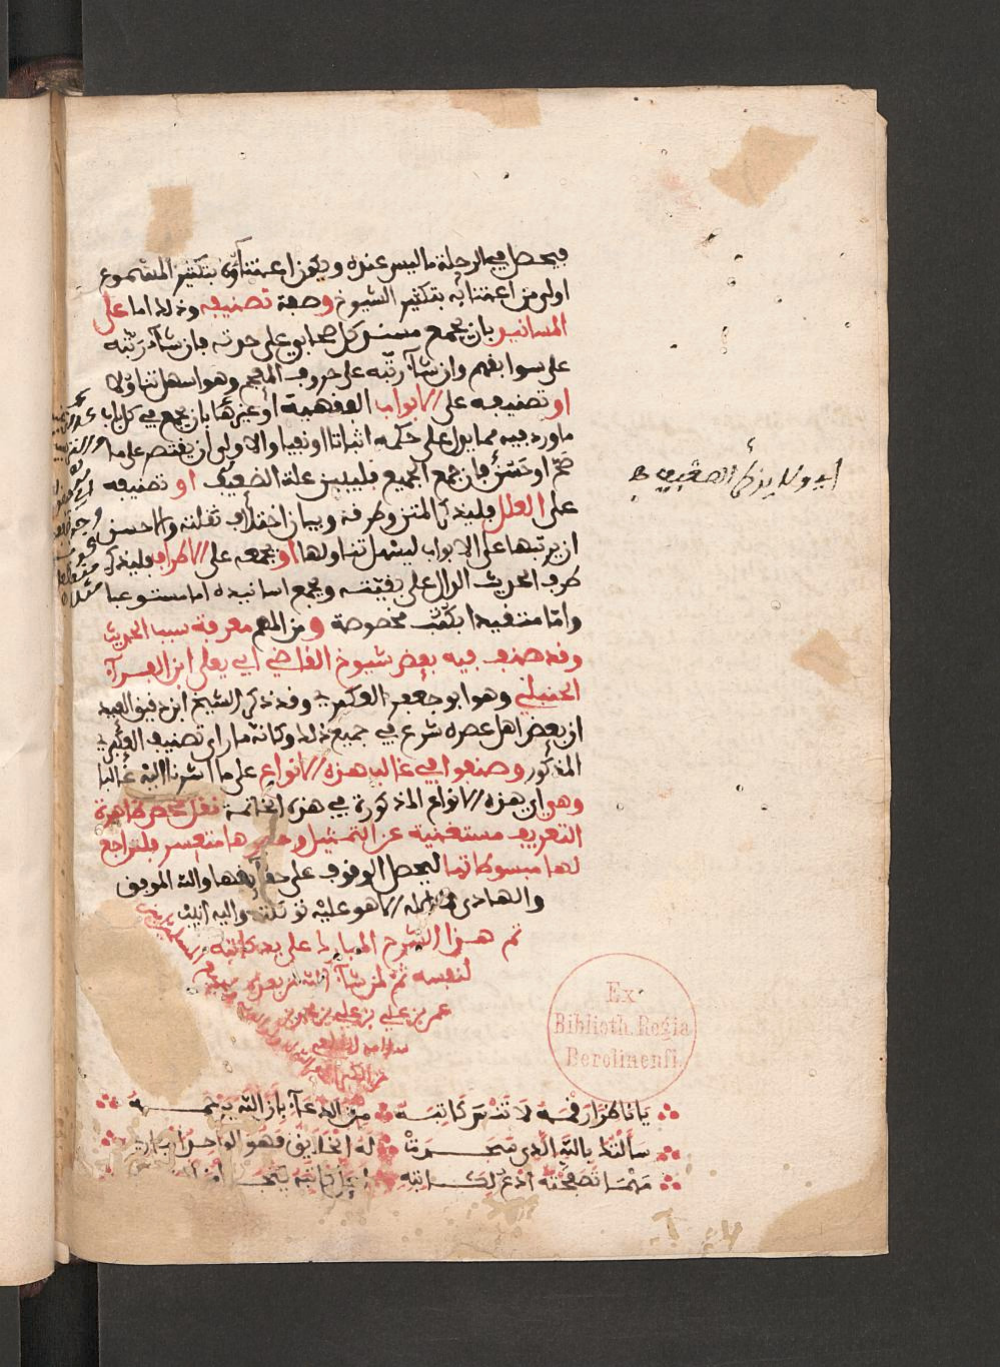 فيحصل في الرحلة ما ليس عنده ويكون اعتناؤه بتكثير المسموع
اولى من اعتنائه بتكثير الشيوخ وصفة تصنيفه وذلك اما على
المسانيد بان يجمع مسند كل صحابي على حدته فان شاء رتبه
على سوابقهم وان شاء رتبه على حروف المعجم وهو اسهل تناولا
او تصنيفه على الابواب الفقهية او غيرها بان يجمع في كل باب
ما ورد فيه مما يدل على حكمه اثباتا او نفيا والاولى ان يقتصر على ما
صح او حسن فان جمع الجميع فليبين علة الضعيف او تصنيفه
على العلل فليذكر المتن وطرقه وبيان اختلاف نقلته والاحسن
ان يرتبها على الابواب ليسهل تناولها او يجمعه على الاطراف فليذكر
طرف الحديث الدال على بقيته ويجمع اسانيده اما مستوعبا
واما متقيدا بكتب مخصوصة ومن المهم معرفة سبب الحديث
وقد صنف فيه بعض شيوخ القاضي ابي يعلى ابن الفراء
الحنبلي وهو ابو جعفر العكبري وقد ذكر الشيخ ابن دقيق العيد
ان بعض اهل عصره شرع في جميع ذلك وكانه ما راى تصنيف العكبري
المذكور وصنفوا في غالب هذه الانواع على ما اشرنا اليه غالبا
وهي اي هذه الانواع المذكورة في هذه الخاتمة نقل محض ظاهرة
التعريف مستغنية عن التمثيل وحصرها متعسر فلتراجع
لها مبسوطاتها ليحصل الوقوف على حقائقها والله الموفق
والهادي لا اله الا هو عليه توكلت واليه انيب
تم هذا الشرح المبارك على يد كاتبه
لنفسه ثم لمن شاء الله من بعده
عمر بن علي بن علي بن
اي ولا يذكر الضعيف
Ex
Biblioth. Regia
Berolinensi.
يا ناظرا رقمه لا تنس كاتبه من الدعاء بان الله يرحمه
سالتك بالله الذي سجدت له الخلايق فهو الواحد الباري
مهما تصفحته ادع لكاتبه